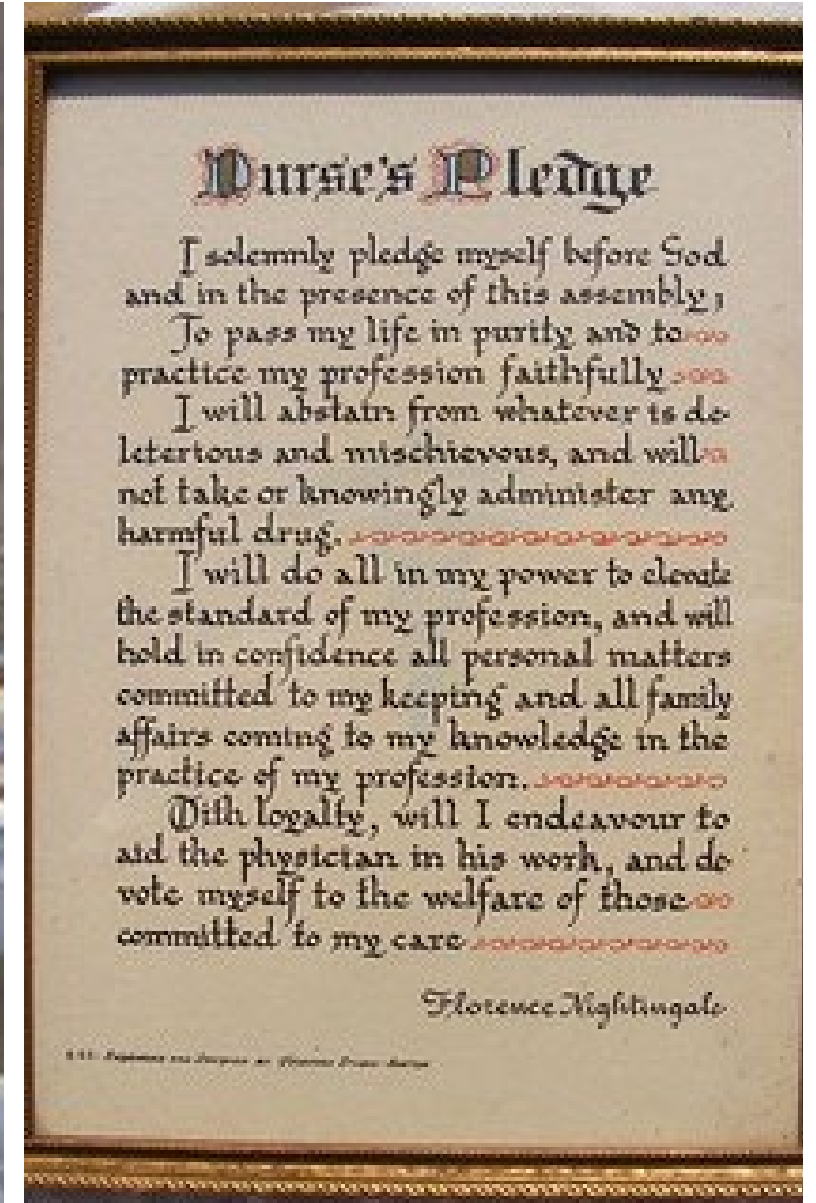 Nurse's Pledge
I solemnly pledge myself before God
and in the presence of this assembly;
To pass my life in purity and to
practice my profession faithfully
I will abstain from whatever is de-
leterious and mischievous, and will
not take or knowingly administer any
harmful drug.
I will do all in my power to elevate
the standard of my profession, and will
hold in confidence all personal matters
committed to my keeping and all family
affairs coming to my knowledge in the
practice of my profession.
With loyalty, will I endeavour to
aid the physician in his work, and de
vote myself to the welfare of those
committed to my care
Florence Nightingale